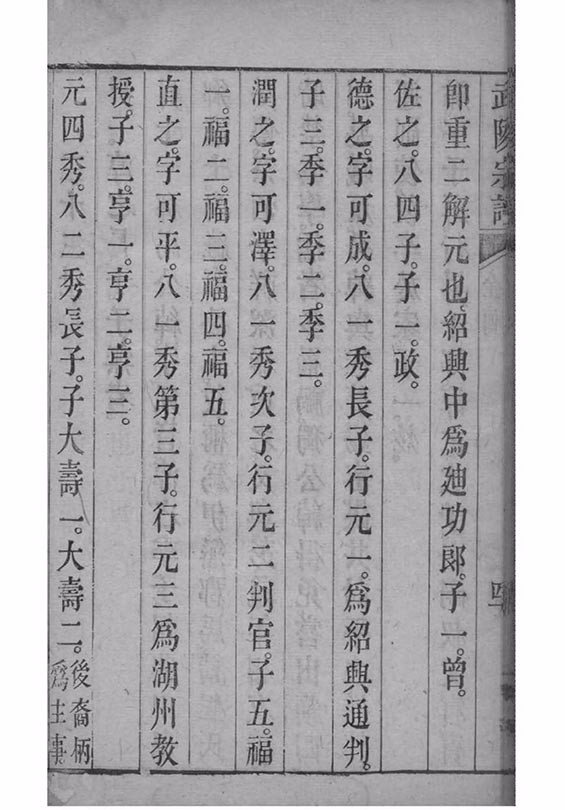 武陵宗譜
即重二解元也。紹興中爲廸功郎。子一。曾。
佐之。八四子。子一。政。
德之。字可成。八一秀長子。行元一。爲紹興通判。
子三。季一。季二。季三。
潤之。字可澤。八一秀次子。行元二判官。子五。福
一。福二。福三。福四。福五。
直之。字可平。八一秀第三子。行元三爲湖州教
授。子三。亨一。亨二。亨三。
元四秀。八二秀長子。子大壽一。大壽二。後裔柄
爲主事